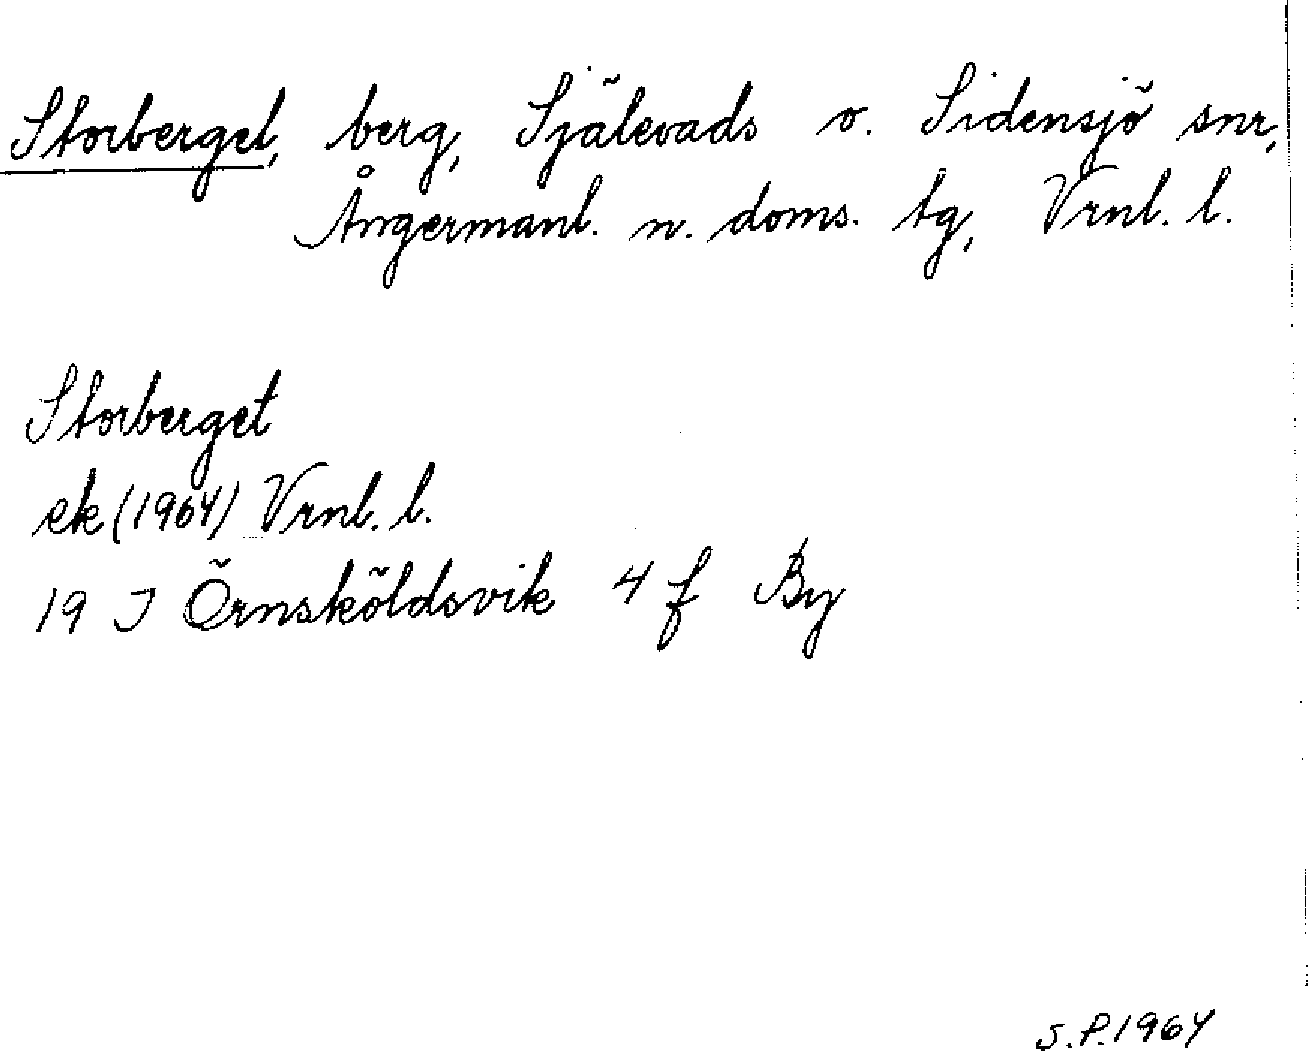 Storberget, berg, Själevads o. Sidensjö snr,
Ångermanl. n. doms. tg, Vrnl. l.
Storberget
ek (1964) Vrnl. l.
19 J Örnsköldsvik 4 f By
S.P. 1964